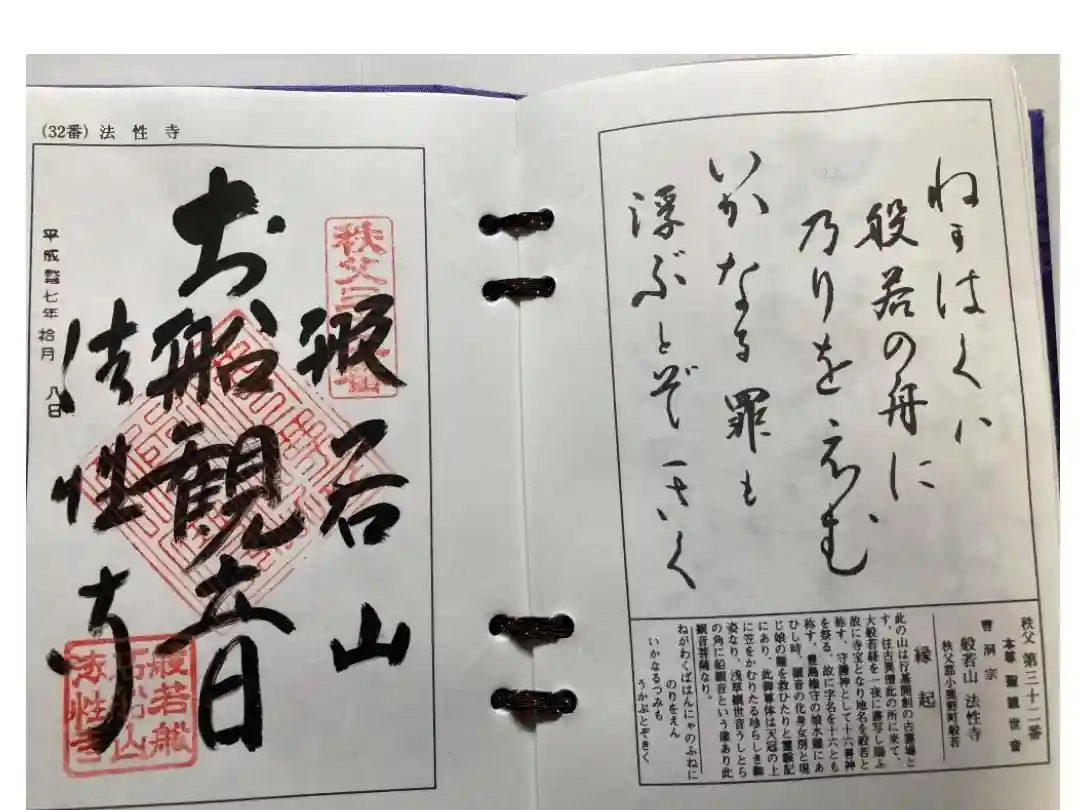 (32番) 法性寺
秩父
般若山
お船観音
法性寺
平成
七年 拾月 八日
般若船
法性寺
ねがはくハ
般若の舟に
乃りをえむ
いかなる罪も
浮ぶとぞきく
秩父 第三十二番
本尊 聖観世音
曹洞宗
般若山 法性寺
秩父郡小鹿野町般若
縁起
此の山は行基開創の古霊場と
す、往古異僧此の所に来て、
大般若経を一夜に書写し賜ふ
故に寺宝となり地名を般若と
称す、守護神として十六善神
を祭る、故に字名を十六とも
称す。豊島権守の娘水難にあ
ひし時、観音の化身女房と現
じ娘の難を救ひたりと霊験記
にあり、此御尊体は天冠の上
に笠をかむりたる珍らしき御
姿なり、浅草観世音うしとら
の角に船観音という像あり此
観音菩薩なり。
ねがわくばはんにゃのふねに
のりをえん
いかなるつみも
うかぶとぞきく